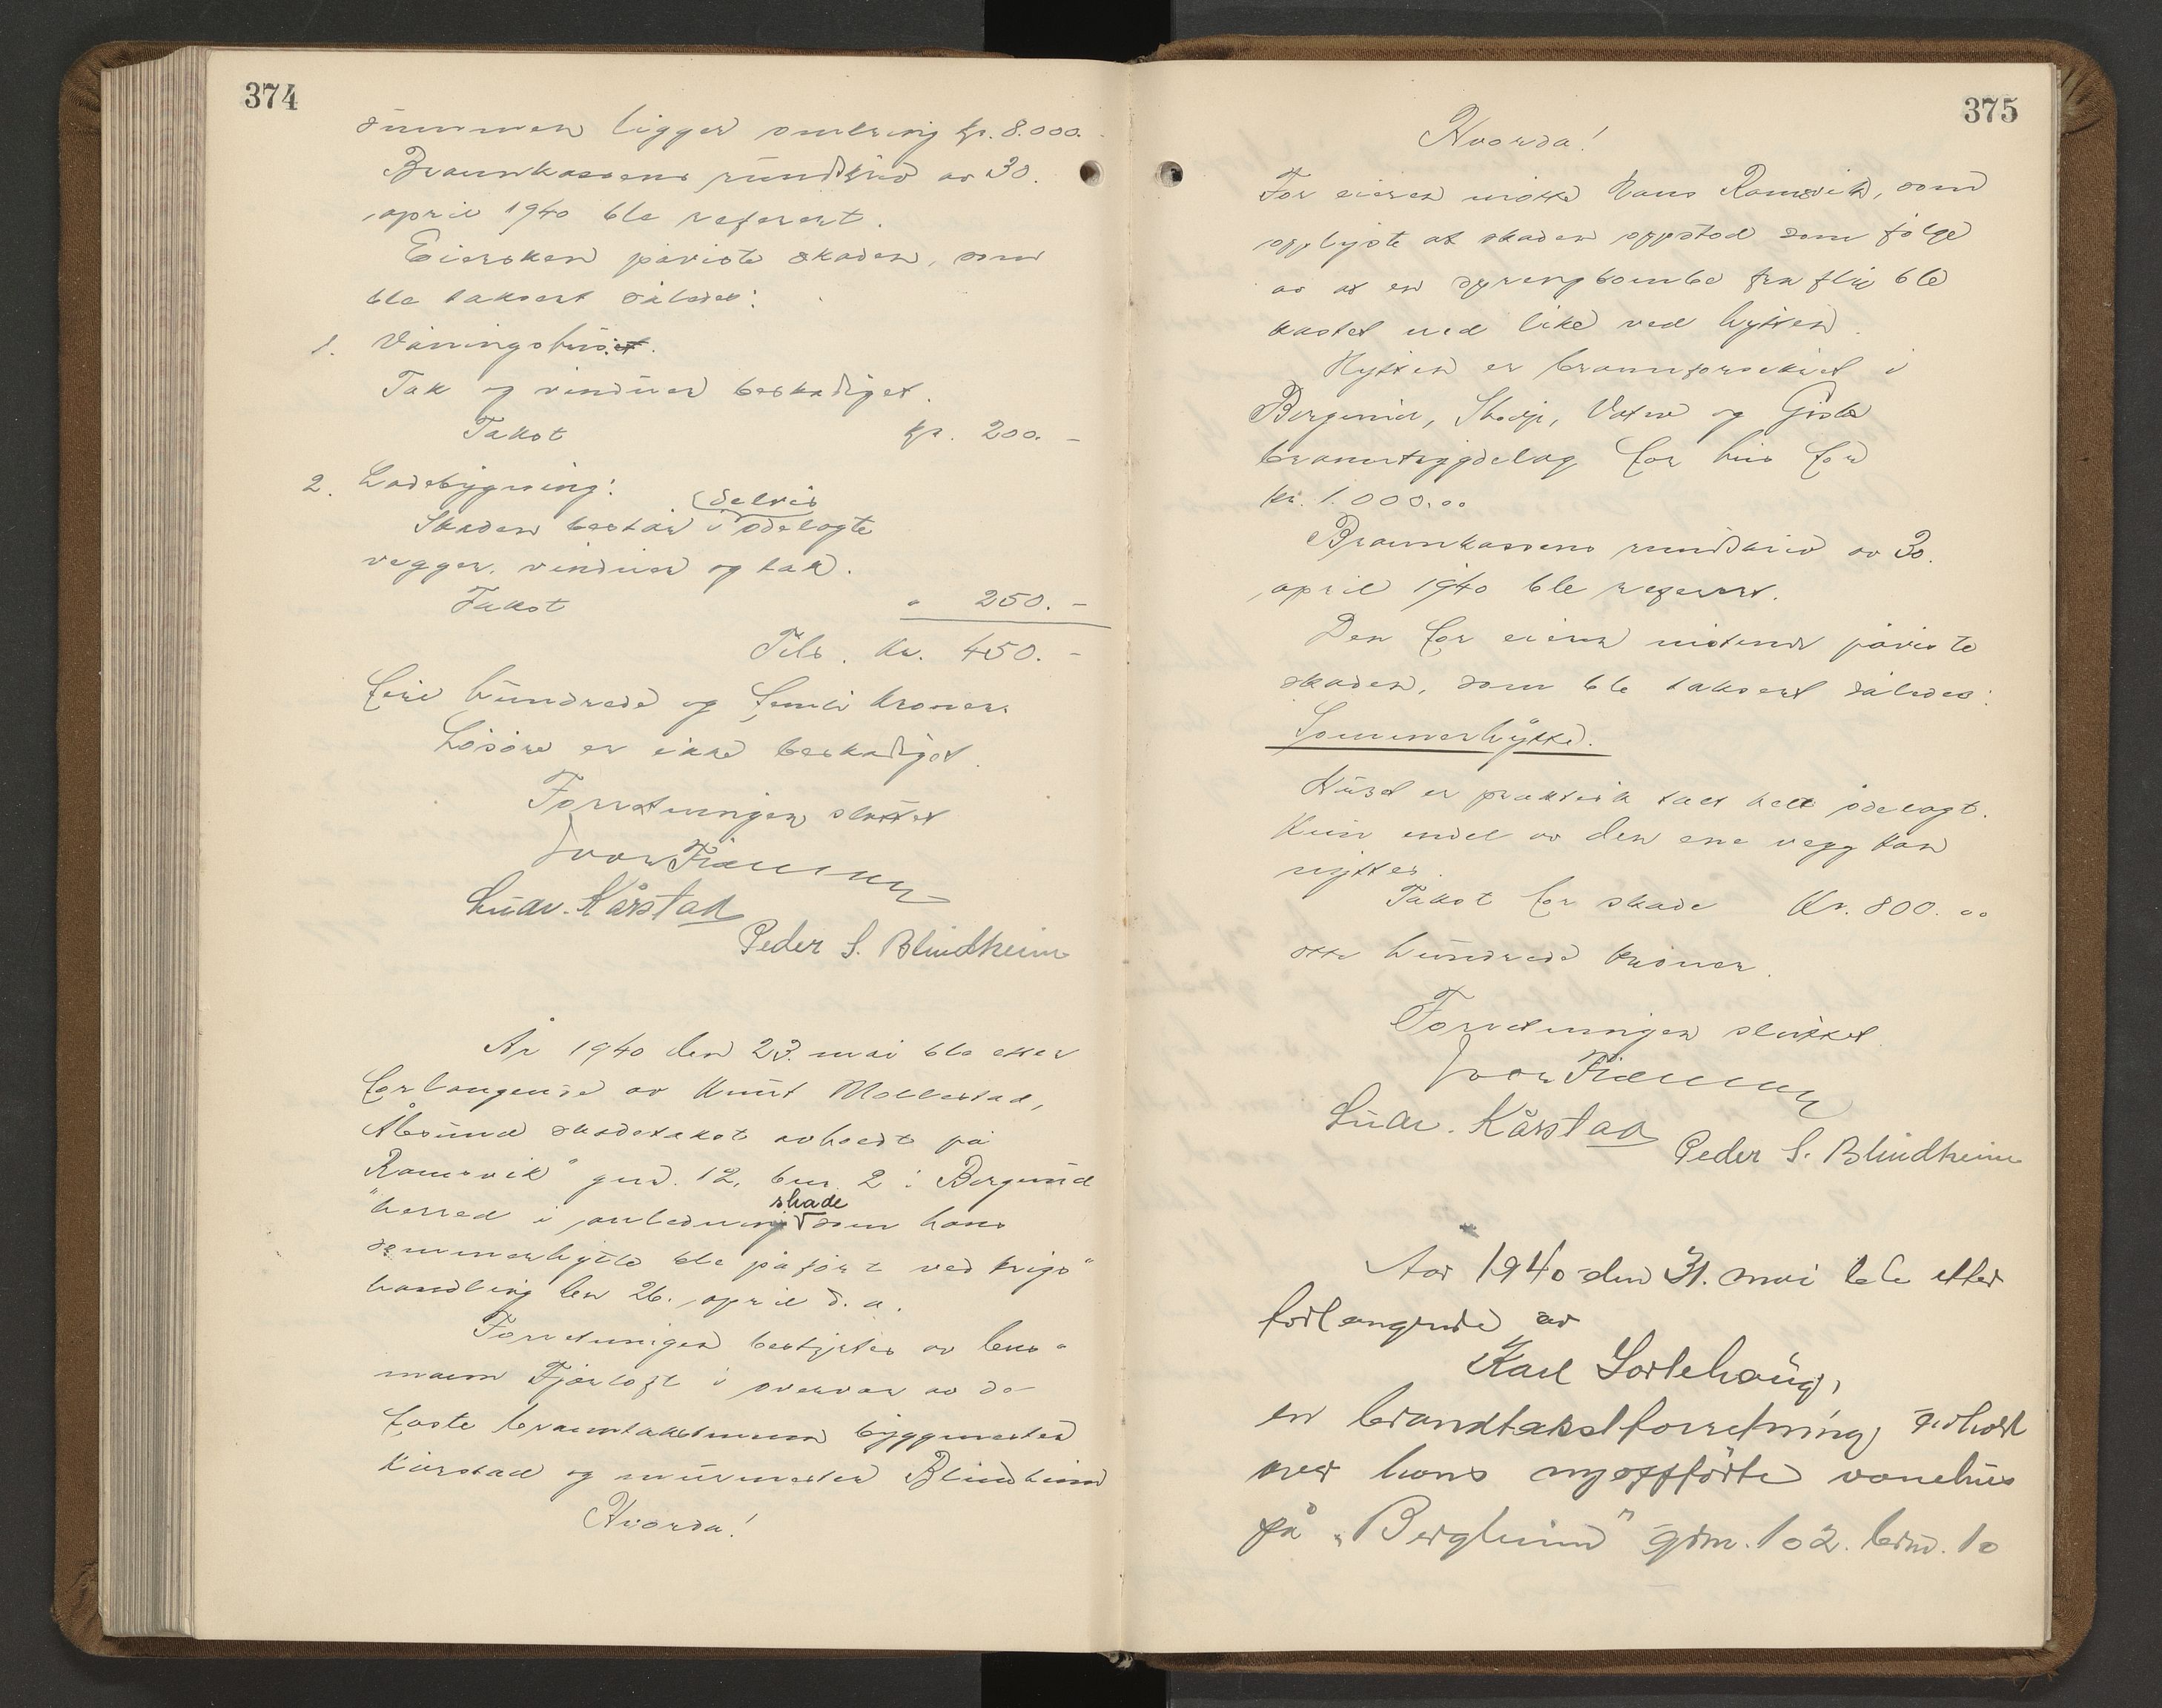 374
summen ligger omkring kr. 8.000.
Brannkassens rundskriv av 30.
april 1940 ble referert.
Eiersken påviste skaden, som
ble taksert således:
1. Våningshus.
Tak og vinduer beskadiget.
Takst kr. 200. -
2. Ladebygning:
delvis
Skaden består i ødelagte
vegger, vinduer og tak.
Takst " 250. -
Tils. kr. 450. -
fire hundrede og femti kroner.
Løsøre er ikke beskadiget.
Forretningen sluttet
Ludv. Kårstad
Peder S. Blindheim
År 1940 den 23. mai ble etter
forlangende av Knut Mollestad,
Ålesund skadetakst avholdt på
"Ramsvik" gnr. 12, bnr. 2 i Borgund
skade
herred i anledning som hans
sommerhytte ble påført ved krigs-
handling den 26. april d. a.
Forretningen bestyrtes av lens-
mann Fjørtoft i overvær av de
faste branntakstmenn byggmester
Kårstad og murmester Blindheim
Hvorda!
375
Hvorda!
For eieren møtte Hans Ramsvik, som
opplyste at skaden oppstod som følge
av at en sprengbombe fra fly ble
kastet ned like ved hytten.
Hytten er brannforsikret i
Borgund, Skodje, Vatne og Giske
branntrygdelag for hus for
kr. 1.000.00
Brannkassens rundskriv av 30.
april 1940 ble referert.
Den for eieren møtende påviste
skaden, som ble taksert således:
Sommerhytte.
Huset er praktisk talt helt ødelagt.
Kun endel av den ene vegg kan
nyttes.
Takst for skade Kr. 800.00
otte hundrede kroner.
Forretningen sluttet.
Ludv. Kårstad
Peder S. Blindheim
Aar 1940 den 31. mai ble etter
forlangende av
Karl Sortehaug,
en brandtakstforretning avholt
over hans nyoppførte vonehus
på "Berglund" grn. 102. brn. 10